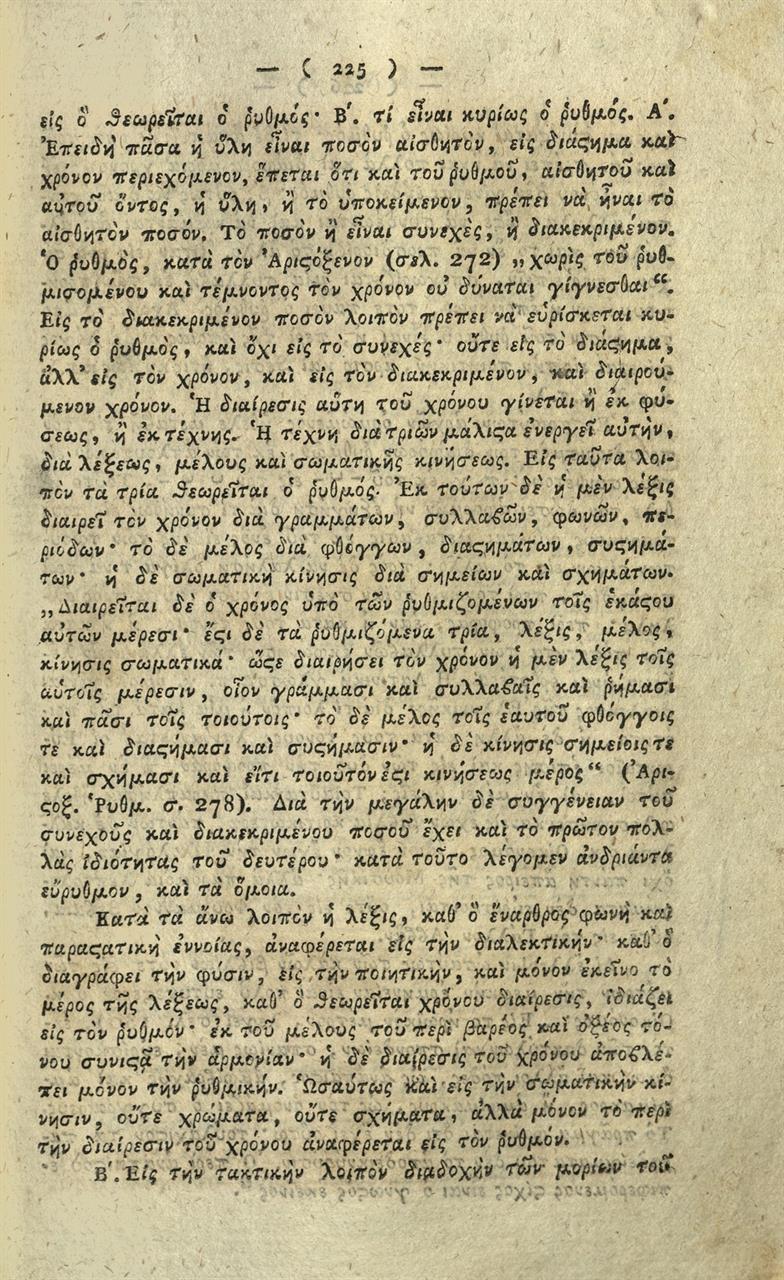 — ( 225 ) —
εἰς ὃ θεωρεῖται ὁ ῥυθμός· Β΄. τί εἶναι κυρίως ὁ ῥυθμός. Α΄.
Ἐπειδὴ πᾶσα ἡ ὕλη εἶναι ποσὸν αἰσθητὸν, εἰς διάϛημα καὶ
χρόνον περιεχόμενον, ἕπεται ὅτι καὶ τοῦ ῥυθμοῦ, αἰσθητοῦ καὶ
αὐτοῦ ὄντος, ἡ ὕλη, ἢ τὸ ὑποκείμενον, πρέπει νὰ ἦναι τὸ
αἰσθητὸν ποσόν. Τὸ ποσὸν ἢ εἶναι συνεχὲς, ἢ διακεκριμένον.
Ὁ ῥυθμὸς, κατὰ τὸν Ἀριϛόξενον (σελ. 272) „χωρὶς τοῦ ῥυθ-
μισομένου καὶ τέμνοντος τὸν χρόνον οὐ δύναται γίγνεσθαι“.
Εἰς τὸ διακεκριμένον ποσὸν λοιπὸν πρέπει νὰ εὑρίσκεται κυ-
ρίως ὁ ῥυθμὸς, καὶ ὄχι εἰς τὸ συνεχές· οὔτε εἰς τὸ διάϛημα,
ἀλλ' εἰς τὸν χρόνον, καὶ εἰς τὸν διακεκριμένον, καὶ διαιρού-
μενον χρόνον. Ἡ διαίρεσις αὕτη τοῦ χρόνου γίνεται ἢ ἐκ φύ-
σεως, ἢ ἐκ τέχνης. Ἡ τέχνη διὰ τριῶν μάλιϛα ἐνεργεῖ αὐτὴν,
διὰ λέξεως, μέλους καὶ σωματικῆς κινήσεως. Εἰς ταῦτα λοι-
πὸν τὰ τρία θεωρεῖται ὁ ῥυθμός. Ἐκ τούτων δὲ ἡ μὲν λέξις
διαιρεῖ τὸν χρόνον διὰ γραμμάτων, συλλαβῶν, φωνῶν, πε-
ριόδων· τὸ δὲ μέλος διὰ φθόγγων, διαϛημάτων, συϛημά-
των· ἡ δὲ σωματικὴ κίνησις διὰ σημείων καὶ σχημάτων.
„Διαιρεῖται δὲ ὁ χρόνος ὑπὸ τῶν ῥυθμιζομένων τοῖς ἑκάϛου
αὐτῶν μέρεσι· ἔϛι δὲ τὰ ῥυθμιζόμενα τρία, λέξις, μέλος,
κίνησις σωματικά· ὥϛε διαιρήσει τὸν χρόνον ἡ μὲν λέξις τοῖς
αὑτοῖς μέρεσιν, οἷον γράμμασι καὶ συλλαβαῖς καὶ ῥήμασι
καὶ πᾶσι τοῖς τοιούτοις· τὸ δὲ μέλος τοῖς ἑαυτοῦ φθόγγοις
τε καὶ διαϛήμασι καὶ συϛήμασιν· ἡ δὲ κίνησις σημείοις τε
καὶ σχήμασι καὶ εἴτι τοιοῦτόν ἐϛι κινήσεως μέρος“ (Ἀρι-
ϛοξ. Ῥυθμ. σ. 278). Διὰ τὴν μεγάλην δὲ συγγένειαν τοῦ
συνεχοῦς καὶ διακεκριμένου ποσοῦ ἔχει καὶ τὸ πρῶτον πολ-
λὰς ἰδιότητας τοῦ δευτέρου· κατὰ τοῦτο λέγομεν ἀνδριάντα
εὔρυθμον, καὶ τὰ ὅμοια.
Κατὰ τὰ ἄνω λοιπὸν ἡ λέξις, καθ' ὃ ἔναρθρος φωνὴ καὶ
παραϛατικὴ ἐννοίας, ἀναφέρεται εἰς τὴν διαλεκτικήν· καθ' ὃ
διαγράφει τὴν φύσιν, εἰς τὴν ποιητικὴν, καὶ μόνον ἐκεῖνο τὸ
μέρος τῆς λέξεως, καθ' ὃ θεωρεῖται χρόνου διαίρεσις, ἰδιάζει
εἰς τὸν ῥυθμόν· ἐκ τοῦ μέλους τοῦ περὶ βαρέος καὶ ὀξέος τό-
νου συνιϛᾷ τὴν ἁρμονίαν· ἡ δὲ διαίρεσις τοῦ χρόνου ἀποβλέ-
πει μόνον τὴν ῥυθμικήν. Ὡσαύτως καὶ εἰς τὴν σωματικὴν κί-
νησιν, οὔτε χρώματα, οὔτε σχήματα, ἀλλὰ μόνον τὸ περὶ
τὴν διαίρεσιν τοῦ χρόνου ἀναφέρεται εἰς τὸν ῥυθμόν.
Β΄. Εἰς τὴν τακτικὴν λοιπὸν διαδοχὴν τῶν μορίων τοῦ